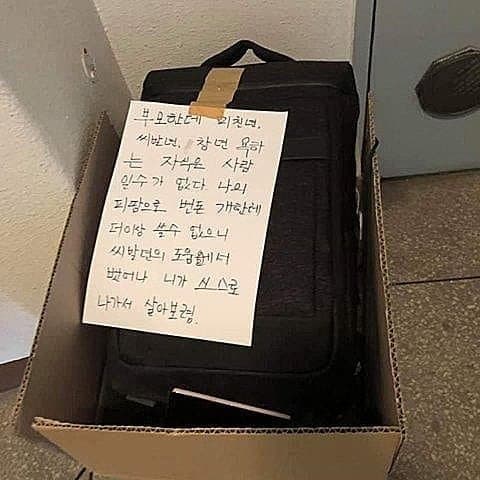 부모한데 미친년,
씨발년, 창년 욕하
는 자식은 사람
일수가 없다 나의
피땀으로 번돈 개한테
더이상 쓸수 없으니
씨발년의 도움줄에서
벗어나 니가 스스로
나가서 살아보렴.